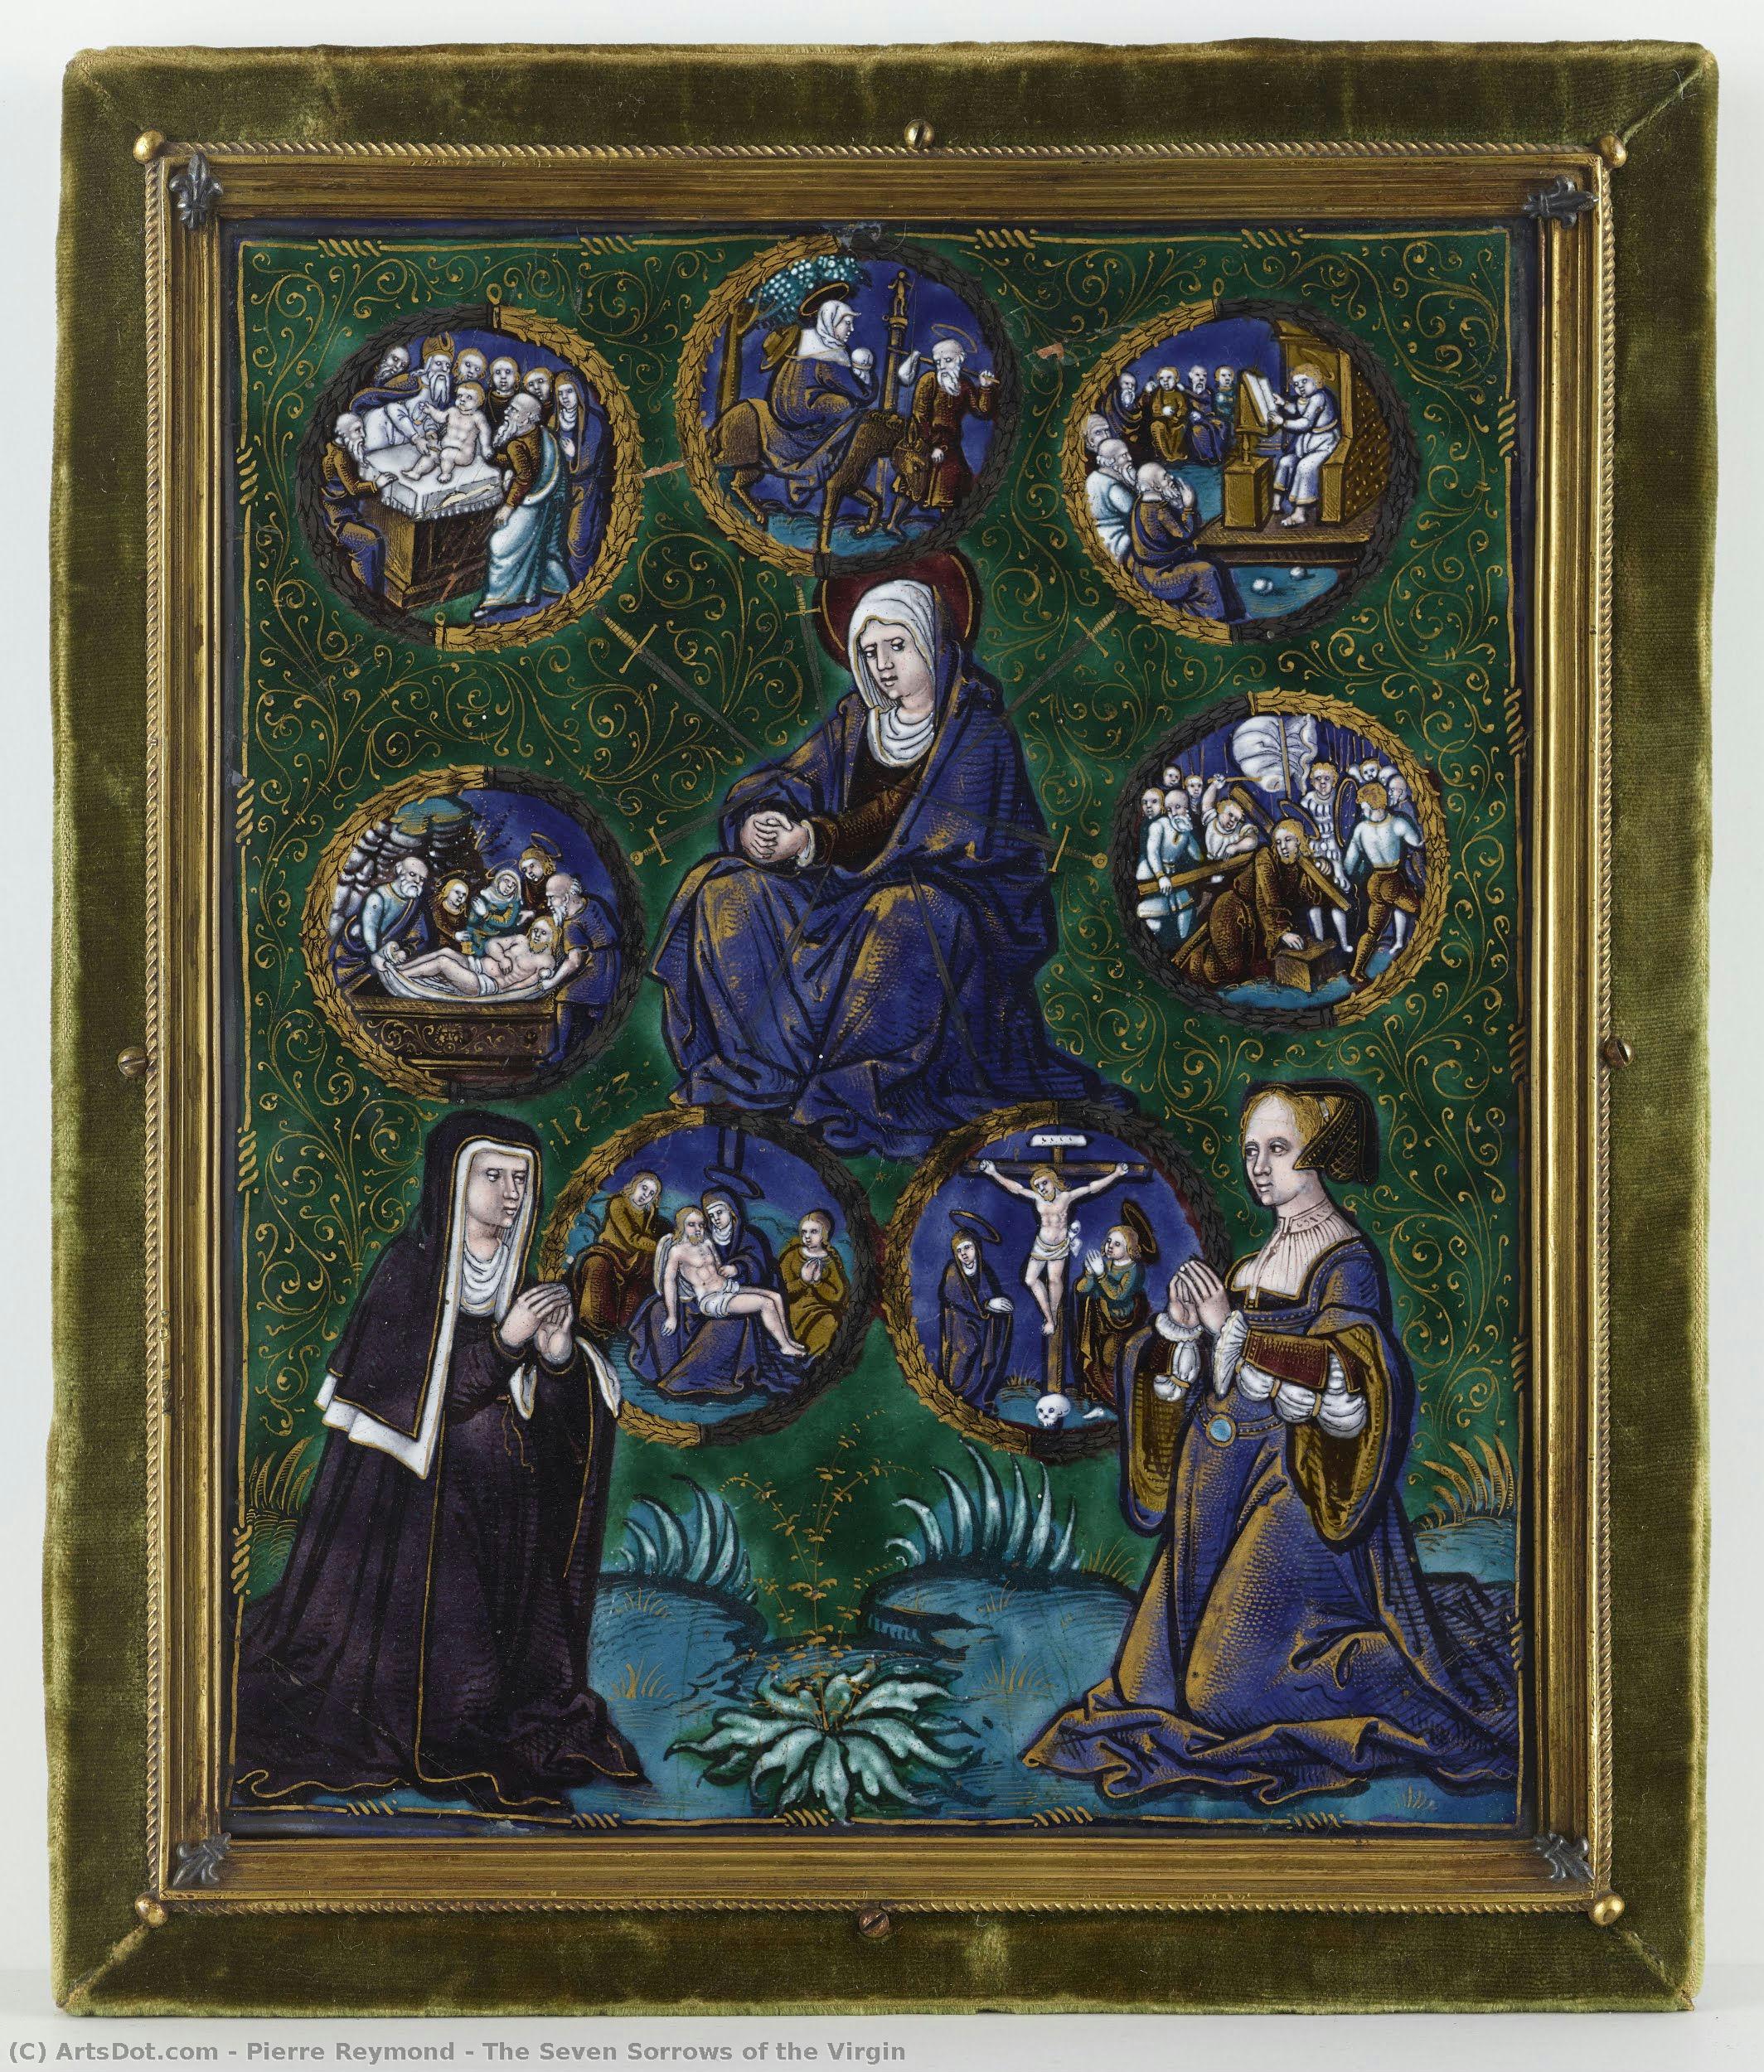 ·1533·
(C) ArtsDot.com - Pierre Reymond - The Seven Sorrows of the Virgin